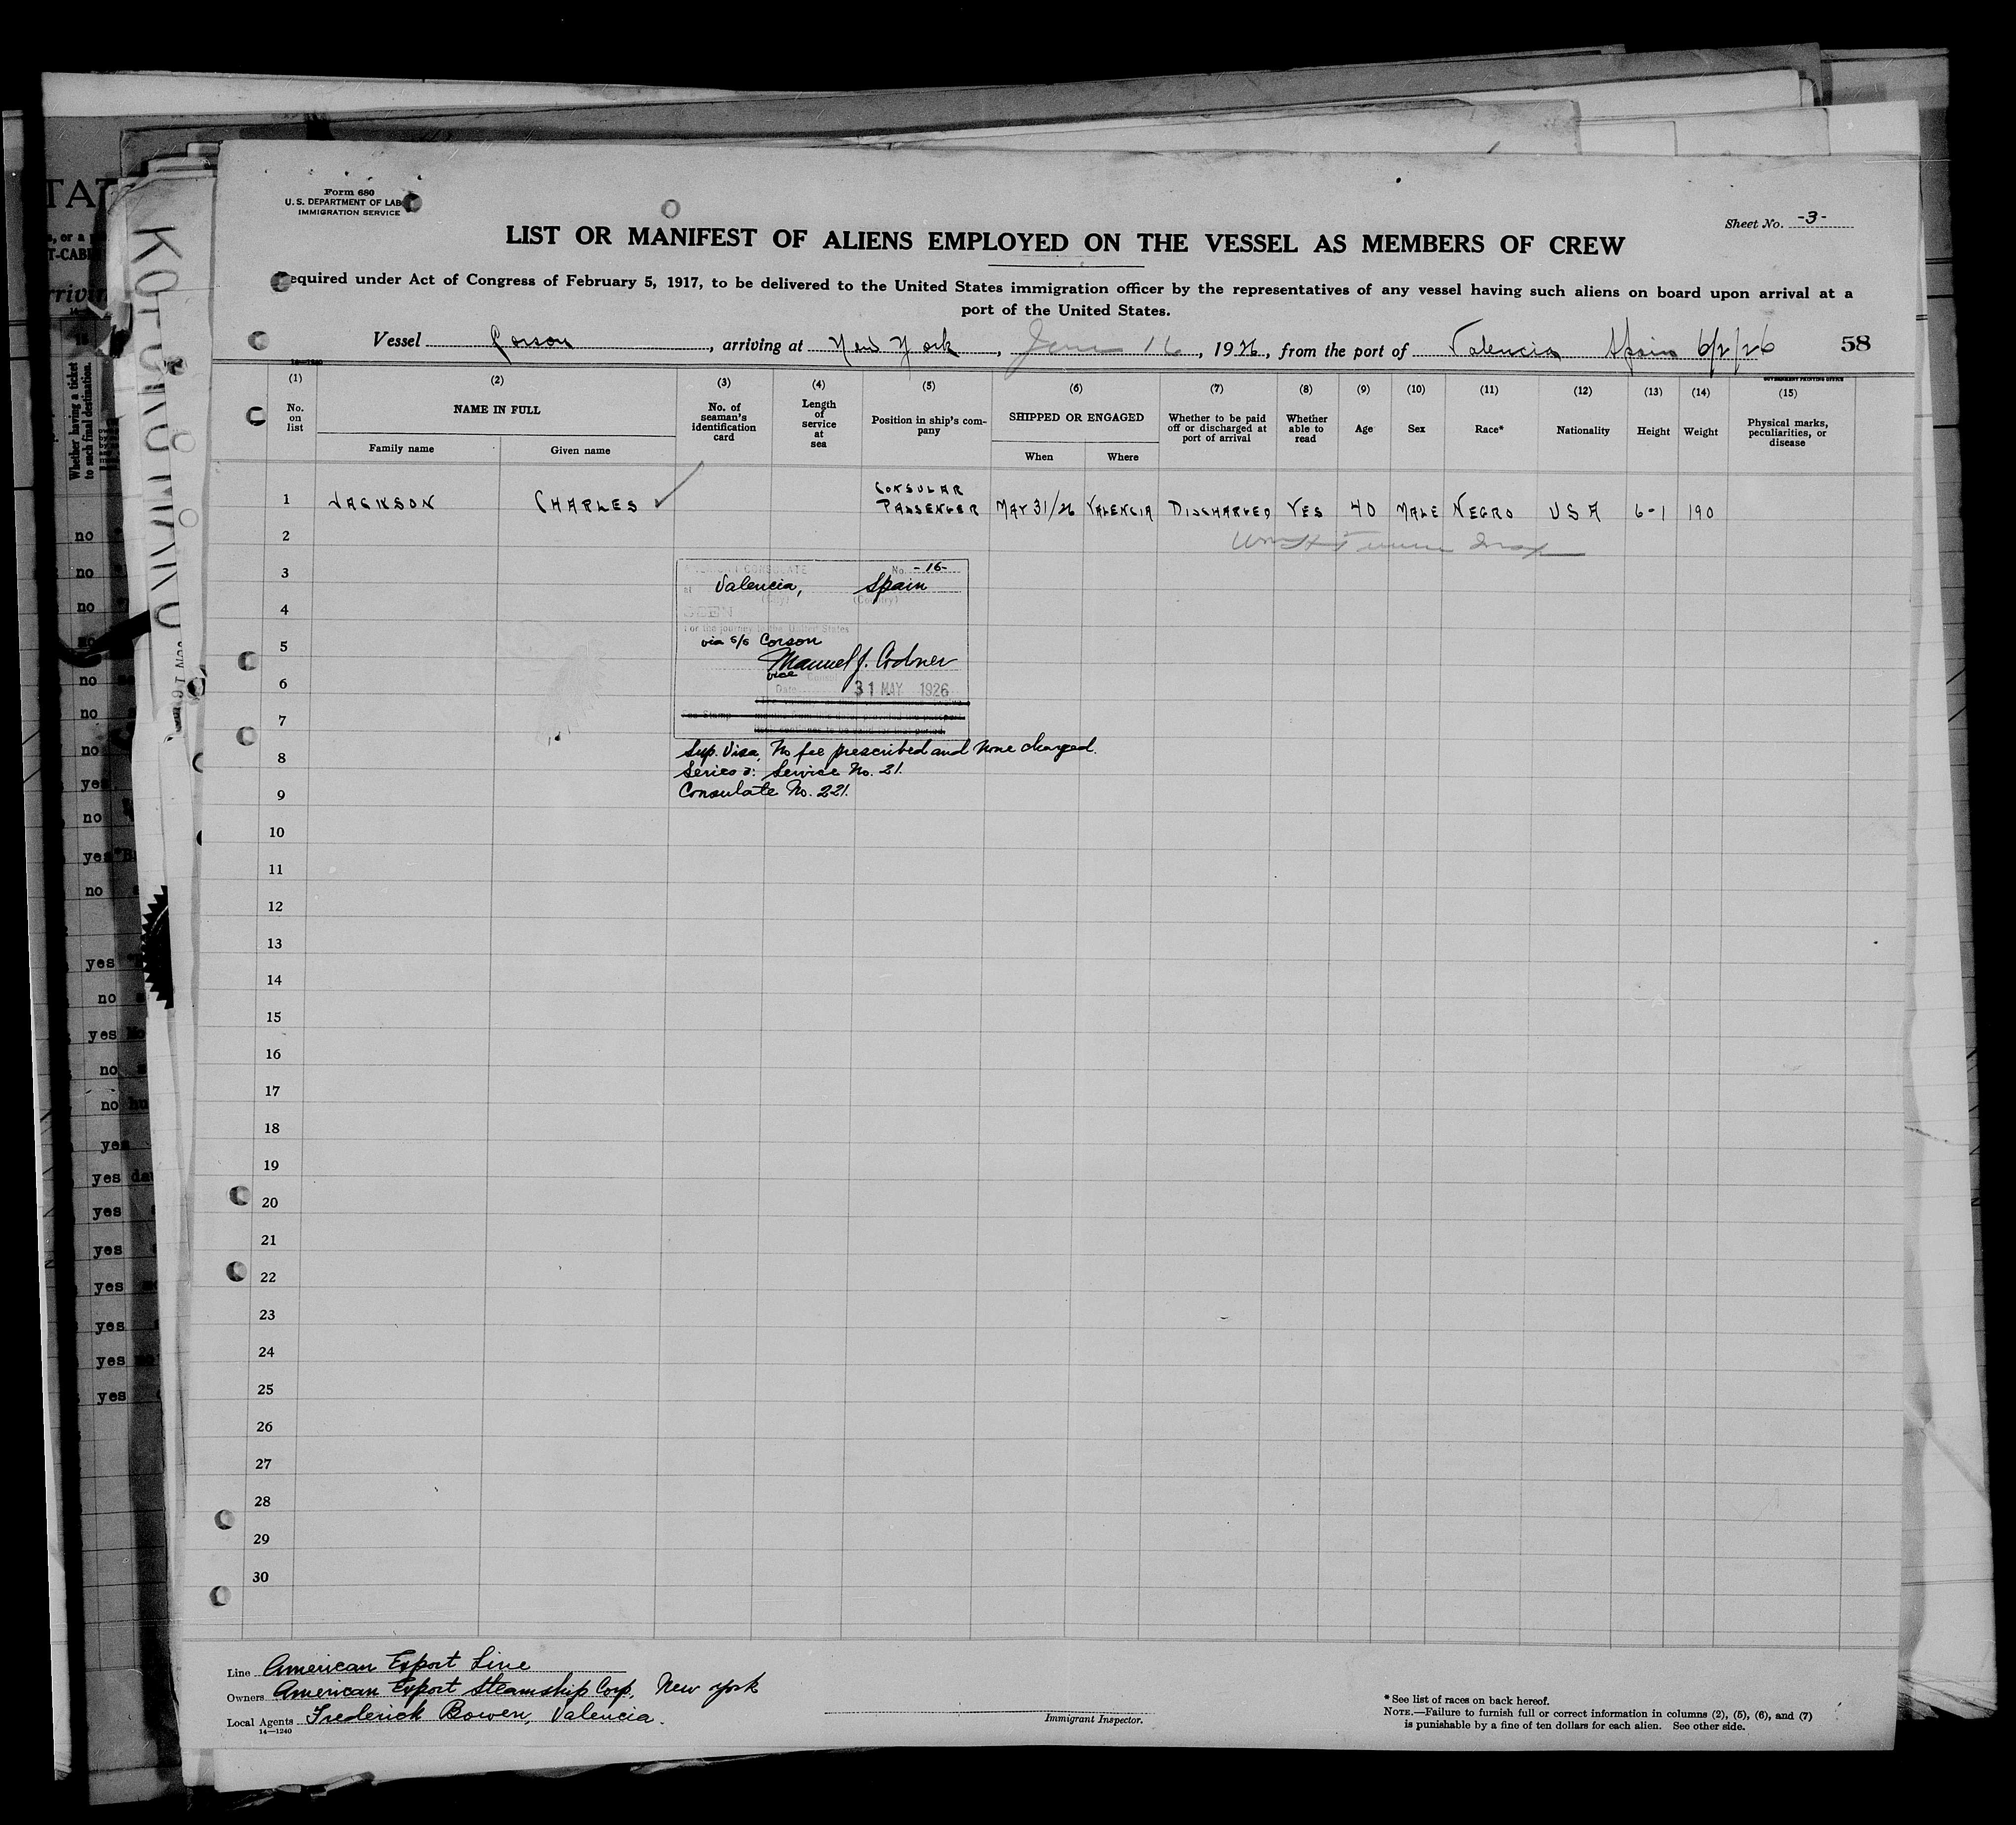 Form 680
U. S. DEPARTMENT OF LAB
IMMIGRATION SERVICE
Sheet No. -3-
LIST OR MANIFEST OF ALIENS EMPLOYED ON THE VESSEL AS MEMBERS OF CREW
equired under Act of Congress of February 5, 1917, to be delivered to the United States immigration officer by the representatives of any vessel having such aliens on board upon arrival at a
port of the United States.
Vessel Corson, arriving at New York, June 16, 1926, from the port of Valencia Spain 6/2/26 58
14—1240
GOVERNMENT PRINTING OFFICE
(1) (2) (3) (4) (5) (6) (7) (8) (9) (10) (11) (12) (13) (14) (15)
No. on list
NAME IN FULL
Family name Given name
No. of seaman's identification card
Length of service at sea
Position in ship's company
SHIPPED OR ENGAGED
When Where
Whether to be paid off or discharged at port of arrival
Whether able to read
Age
Sex
Race*
Nationality
Height
Weight
Physical marks, peculiarities, or disease
1 JACKSON CHARLES ✓ CONSULAR PASSENGER MAY 31/26 VALENCIA DISCHARGED YES 40 MALE NEGRO USA 6-1 190
2
3
4
5
6
7
8
9
10
11
12
13
14
15
16
17
18
19
20
21
22
23
24
25
26
27
28
29
30
AMERICAN CONSULATE No. -16-
at Valencia, Spain
(City) (Country)
SEEN
For the journey to the United States
via S/S Corson
vice Consul
Date 31 MAY 1926
Sup. Visa, No fee prescribed and none charged.
Service No. 21.
Consulate No. 221.
Line American Export Line
Owners American Export Steamship Corp. New York
Local Agents Frederick Bowen, Valencia.
14—1240
Immigrant Inspector.
* See list of races on back hereof.
NOTE.—Failure to furnish full or correct information in columns (2), (5), (6), and (7)
is punishable by a fine of ten dollars for each alien. See other side.
Whether having a ticket
to such final destination.